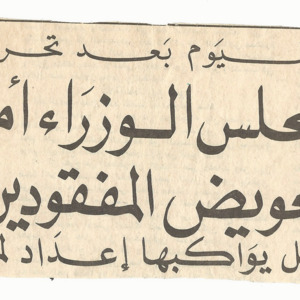 ـيَوم بَعـد تحر
جلس الـوزرَاء أم
ـعويض المفقودين
ـل يوَاكبها إعدَاد لم